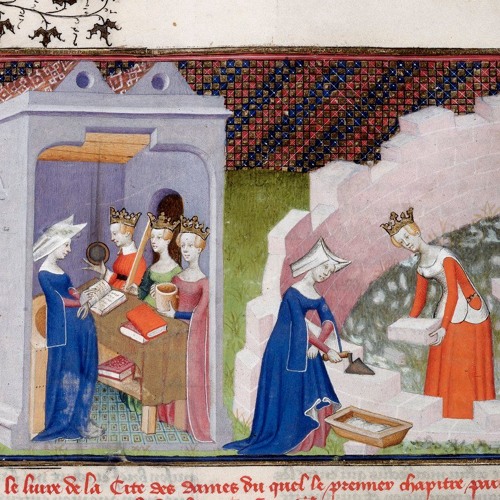 le liure de la Cite des dames du quel le premier chapitre par